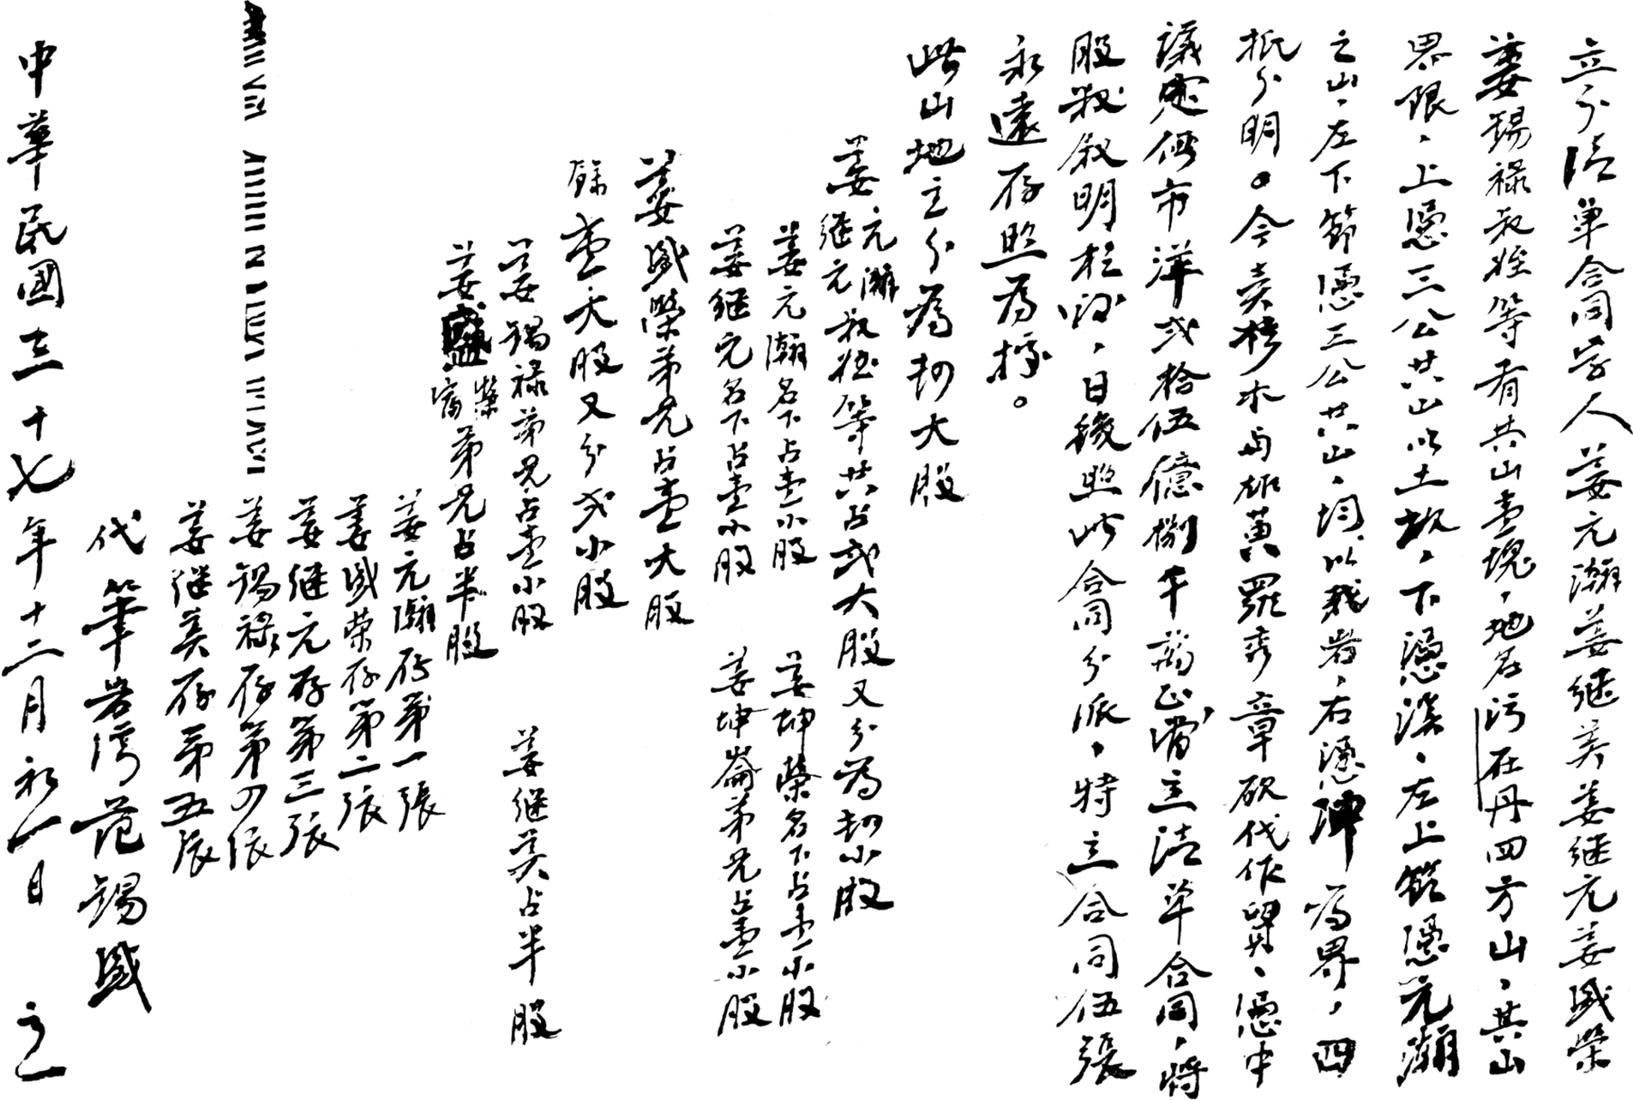 立分清单合同字人姜元瀚姜继美姜继元姜盛荣
姜锡禄叔姪等有共山壹塊，地名污在丹四方山，其山
界限，上憑三公共山以土坎，下憑溪，左上節憑元瀚
之山，左下節憑三公共山，均以栽岩，右憑冲為界，四
抵分明。今卖杉木与姬黄羅彦章砍伐作貿，憑中
議定價市洋弍拾伍億捌千萬正，當立清单合同，將
股数叙明於後，日後照此合同分派，特立合同伍張
永遠存照為據。
此山地主分為叁大股
姜元瀚继元叔姪等共占弍大股又分為四小股
姜元瀚名下占壹小股 姜坤榮名下占壹小股
姜继元名下占壹小股 姜坤崙弟兄占壹小股
姜盛榮弟兄占壹大股
餘壹大股又分弍小股
姜锡禄弟兄占壹小股 姜继美占半股
姜盛榮富弟兄占半股
姜元瀚存第一張
姜盛荣存第二張
姜继元存第三張
姜锡禄存第四張
姜继美存第五張
代筆岩湾范锡盛
中華民國三十七年十二月初一日 立